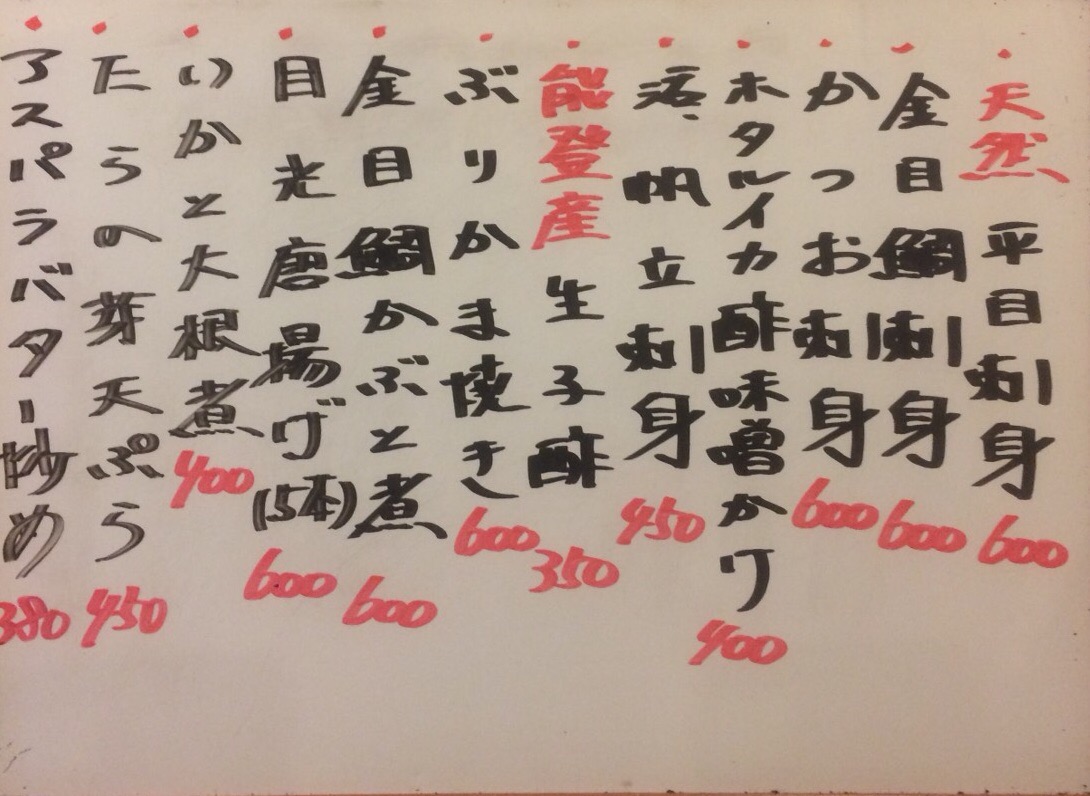 天然 平目刺身 600
金目鯛刺身 600
かつお刺身 600
ホタルイカ酢味噌かけ 400
活帆立刺身 450
能登産 生子酢 350
ぶりかま焼き 600
金目鯛かぶと煮 600
目光唐揚げ(5本) 600
いかと大根煮 400
たらの芽天ぷら 450
アスパラバター炒め 380